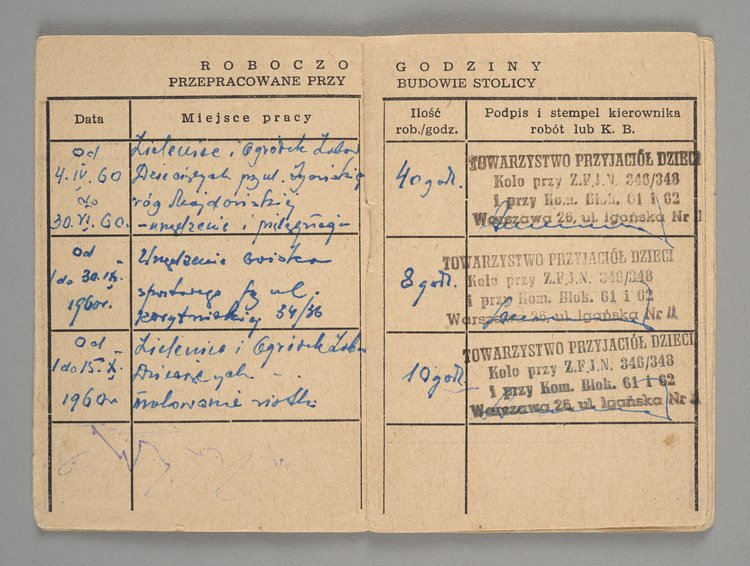 ROBOCZO GODZINY
PRZEPRACOWANE PRZY BUDOWIE STOLICY
Data
Miejsce pracy
Ilość
rob./godz.
Podpis i stempel kierownika
robót lub K. B.
od
4.IV.60
do
30.VI.60.
Zieleniec i Ogródek Zabaw
Dziecięcych przy ul.
róg Majdańskiej
- urządzenie i pielęgnag-
40 godz.
TOWARZYSTWO PRZYJACIÓŁ DZIECI
Koło przy Z.F.J.N. 346/348
i przy Kom. Blok. 61 i 62
Warszawa 26, ul. Igańska Nr 11
od
1 do 30.IX.
1960r.
Urządzenie boiska
sportowego przy ul.
34/36
8 godz.
TOWARZYSTWO PRZYJACIÓŁ DZIECI
Koło przy Z.F.J.N. 346/348
i przy Kom. Blok. 61 i 62
Warszawa 26, ul. Igańska Nr 11
od
1 do 15.X.
1960r
Zieleniec i Ogródek Zabaw
Dziecięcych -
malowanie siatki
10 godz.
TOWARZYSTWO PRZYJACIÓŁ DZIECI
Koło przy Z.F.J.N. 346/348
i przy Kom. Blok. 61 i 62
Warszawa 26, ul. Igańska Nr 11